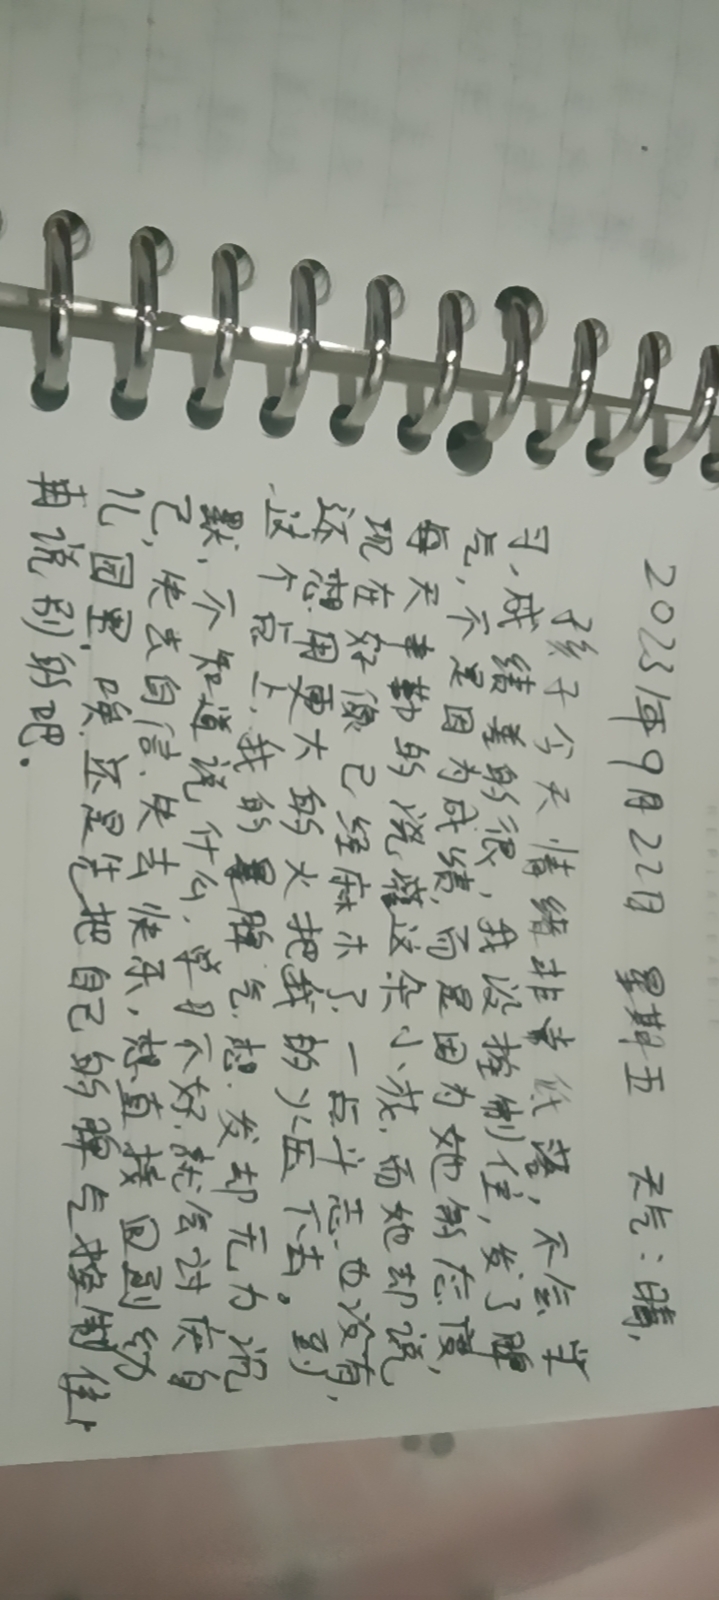 2023年9月22日 星期五 天气：晴，
孩子今天情绪非常低落，不会学
习，成绩差的很，我没控制住，发了脾
气，不是因为成绩，而是因为她的态度，
每天辛勤的浇灌这朵小花，而她却说，
现在好像已经麻木了，一点斗志也没有，
还想用更大的火把我的火压下去。到
这个点上，我的暴脾气想发却无力沉
默，不知道说什么，学习不好，就会讨厌自
己，失去自信，失去快乐，想直接回到幼
儿园里，唉，还是先把自己的脾气控制住，
再说别的吧。